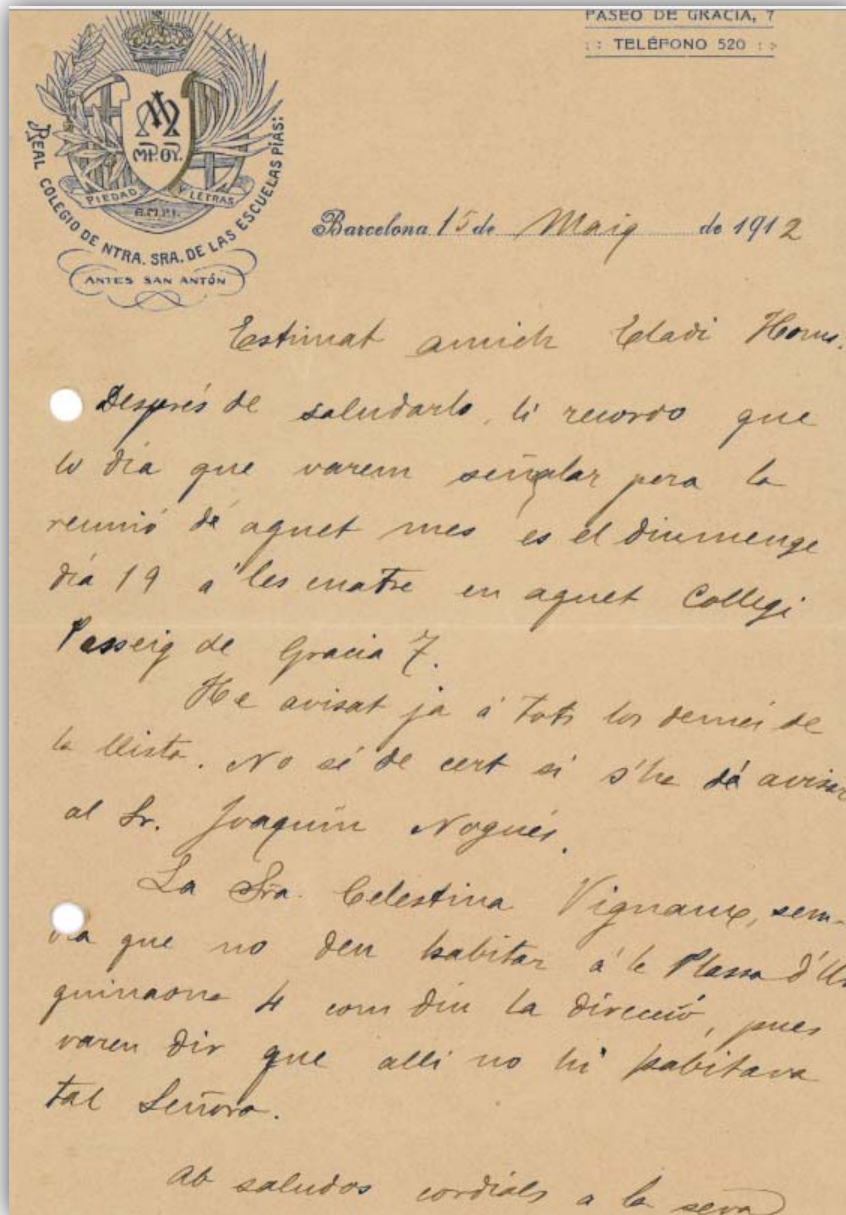 PASEO DE GRACIA, 7
:: TELÉFONO 520 ::
MP. ΘΥ.
PIEDAD Y LETRAS
A.M.P.I.
REAL COLEGIO DE NTRA. SRA. DE LAS ESCUELAS PÍAS:
ANTES SAN ANTÓN
Barcelona 15 de Maig de 1912
Estimat amich Eladi Homs.
Després de saludarlo, li recordo que
lo dia que varem señalar pera la
reunió de aquet mes es el diumenge
dia 19 a les cuatre en aquet Collegi
Passeig de Gracia 7.
He avisat ja á tots los demés de
la llista. No sé de cert si s'ha de avisar
al Sr. Joaquín Nogués.
La Sra. Celestina Vignaux, sem-
bla que no deu habitar á la Plassa d'Ur
quinaona 4 com diu la direcció, pues
varen dir que allí no hi habitava
tal Señora.
Ab saludos cordials a la seva